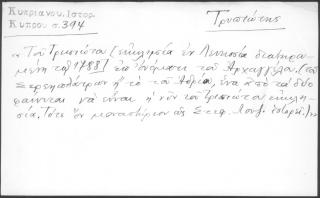 Κυπριανού. Ιστορ.
Κύπρου σ. 394
Τρυπιώτης
«Του Τρυπιώτα (εκκλησία εν Λευκωσία διατηρα-
μένη τω 1788) επ' ονόματι του Αρχαγγέλου, (του
ή το του Ανδρία, ένα από τα δύο
φαίνεται να είναι η νυν του Τρυπιώτου εκκλη-
σία. Τότε ην μοναστήριον ως Στεφ.